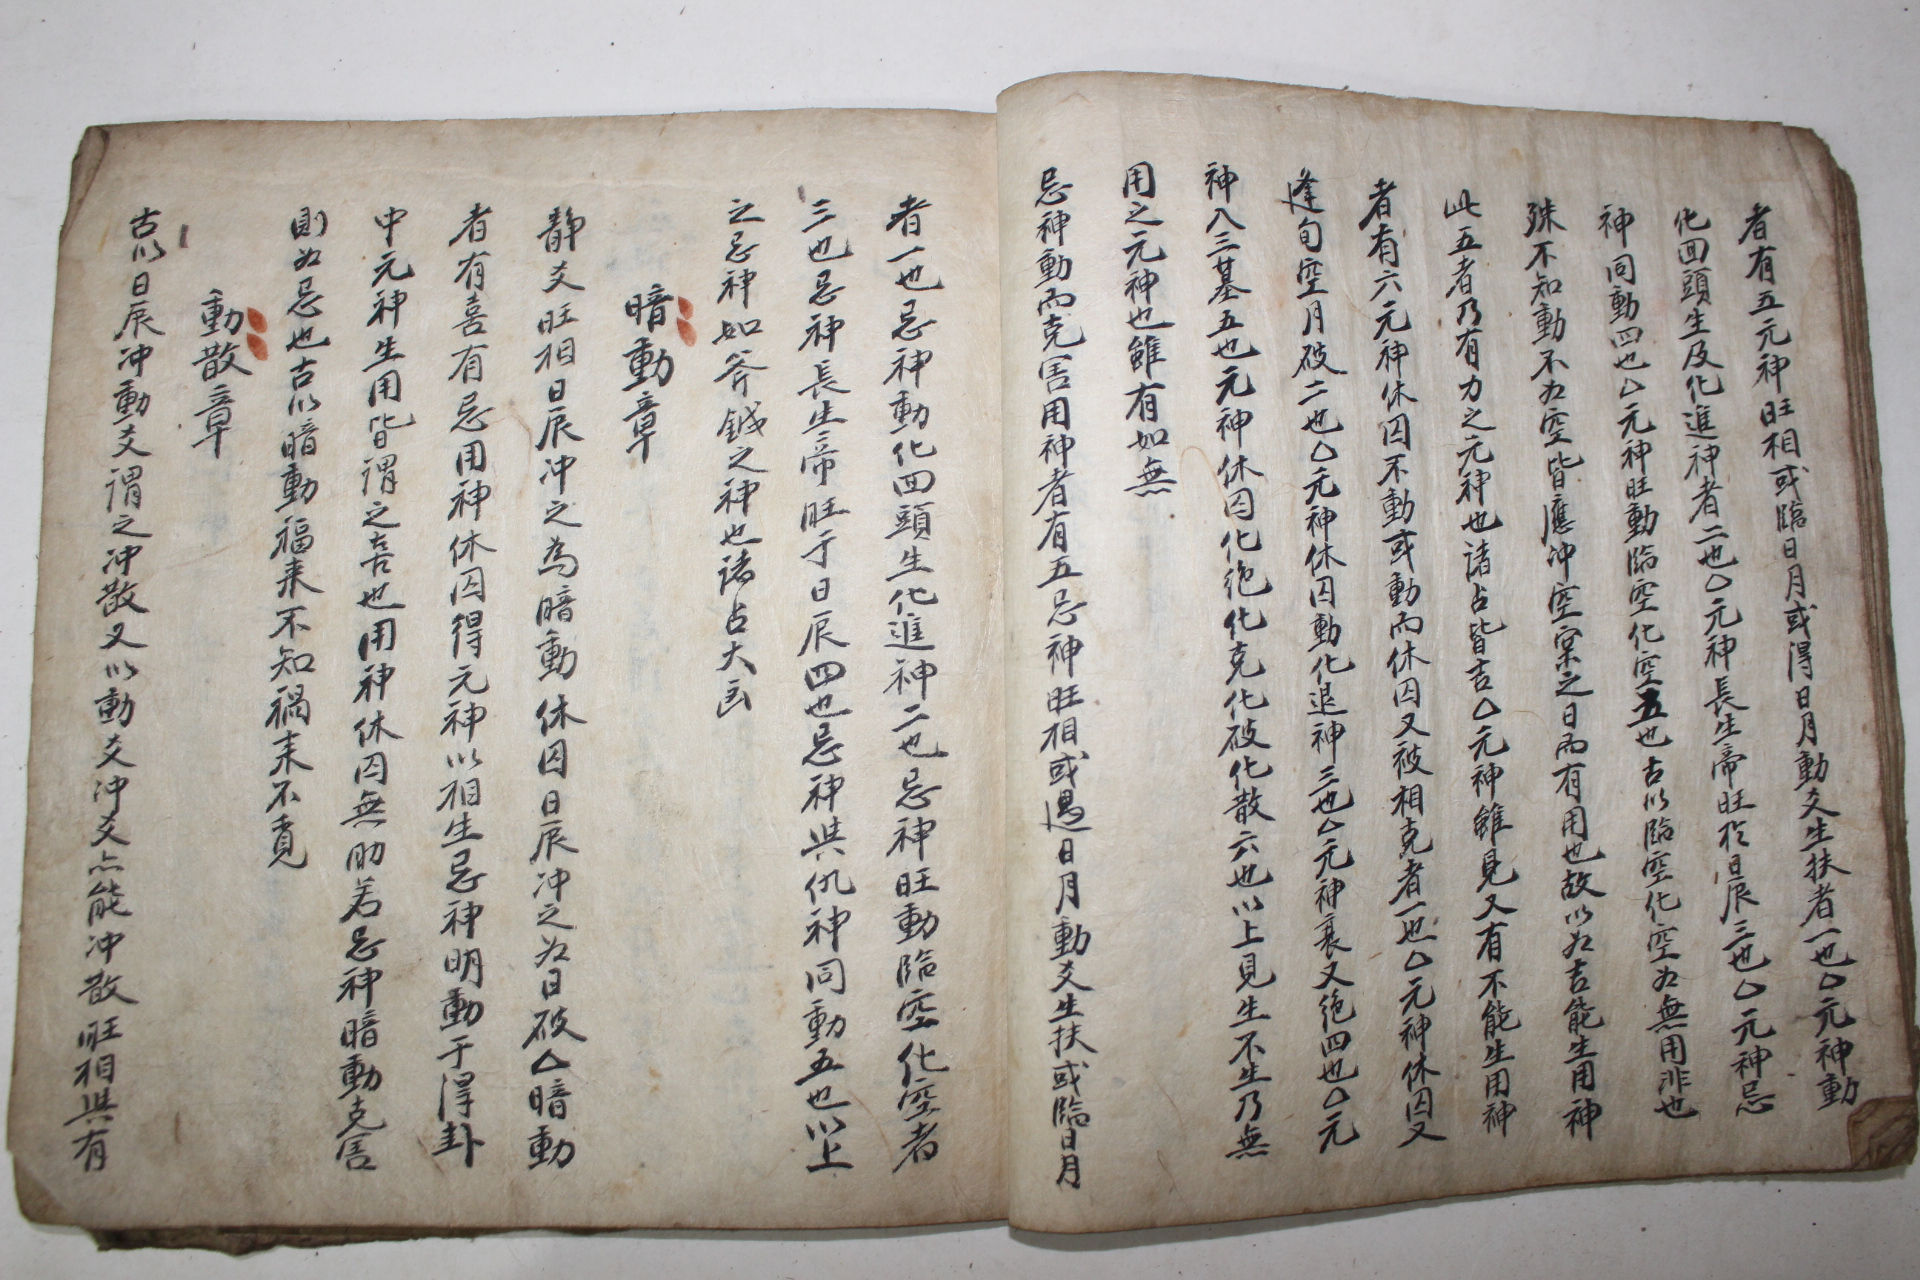 者有五元神旺相或臨日月或得日月動爻生扶者一也△元神動
化回頭生及化進神者二也△元神長生帝旺於日辰三也△元神忌
神同動四也△元神旺動臨空化空五也古以臨空化空为無用非也
殊不知動不为空皆應冲空宲之日而有用也故以为吉能生用神
此五者乃有力之元神也諸占皆吉△元神雖見又有不能生用神
者有六元神休囚不動或動而休囚又被相克者一也△元神休囚又
逢旬空月破二也△元神休囚動化退神三也△元神衰又絶四也△元
神入三墓五也元神休囚化絶化克化破化散六也以上見生不生乃無
用之元神也雖有如無
忌神動而克害用神者有五忌神旺相或遇日月動爻生扶或臨日月
者一也忌神動化回頭生化進神二也忌神旺動臨空化空者
三也忌神長生帝旺于日辰四也忌神與仇神同動五也以上
之忌神如斧鉞之神也諸占大凶
暗動章
靜爻旺相日辰冲之為暗動休囚日辰冲之为日破△暗動
者有喜有忌用神休囚得元神以相生忌神明動于得卦
中元神生用皆謂之吉也用神休囚無助若忌神暗動克害
則为忌也古以暗動福来不知禍来不覔
動散章
古以日辰冲動爻謂之冲散又以動爻冲爻亦能冲散旺相與有